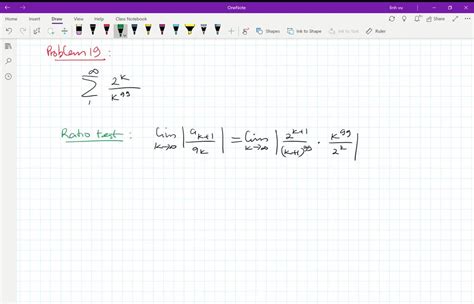 OneNote
linh vu
File Home Insert Draw View Help Class Notebook
Shapes Ink to Shape Ink to Text Ruler
Problem 19 :
∞
∑ 2^k / k^99
1
Ratio test : lim k→∞ | a_{k+1} / a_k | = lim k→∞ | 2^{k+1} / (k+1)^99 · k^99 / 2^k |